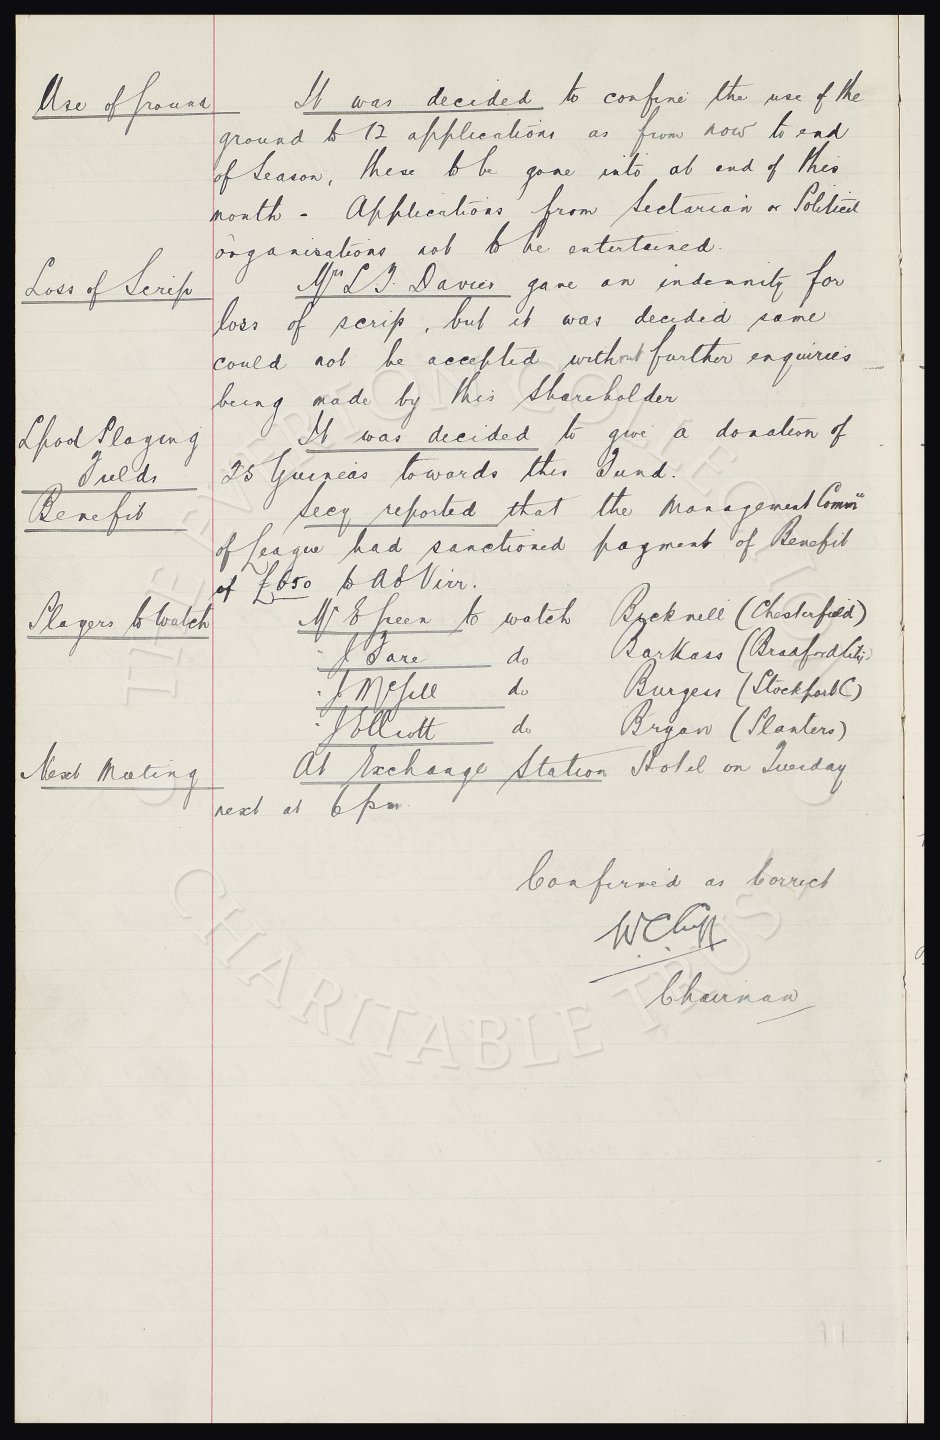 Use of Ground It was decided to confine the use of the
ground to 12 applications as from now to end
of Season, these to be gone into at end of this
month - Applications from Sectarian or Political
organisations not to be entertained.
Loss of Scrip Mrs L J. Davies gave an indemnity for
loss of scrip, but it was decided same
could not be accepted without further enquiries
being made by this Shareholder
Lpool Playing It was decided to give a donation of
Fields 25 Guineas towards this Fund.
Benefit Secy reported that the Management Commee
of League had sanctioned payment of Benefit
of £650 to A E Virr.
Players to Watch Mr E Green to watch Bucknell (Chesterfield)
" J Fare do Barkass (Bradford City)
" J McGill do Burgess (Stockport C)
" J Elliott do Bryan (Planters)
Next Meeting At Exchange Station Hotel on Tuesday
next at 6 pm
Confirmed as Correct
W.C. Cuff
Chairman
THE EVERTON COLLECTION
CHARITABLE TRUST